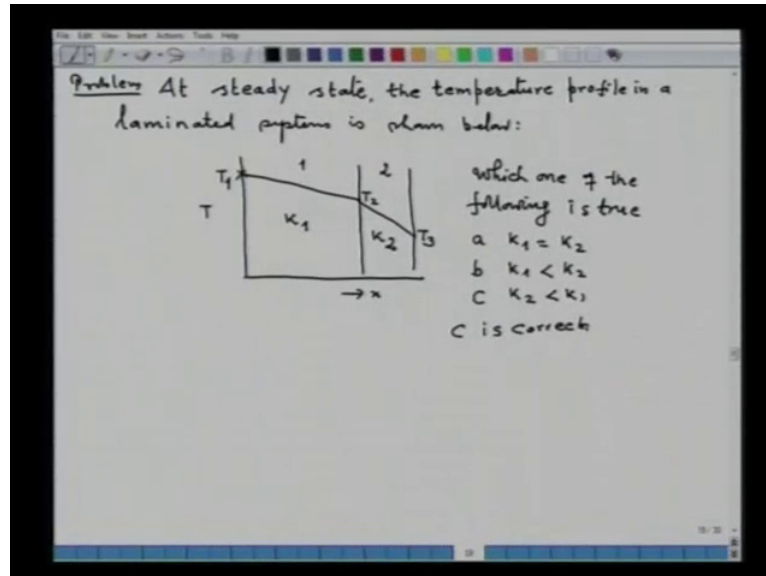 File Edit View Insert Actions Tools Help
Problem At steady state, the temperature profile in a
laminated systems is shown below:
T1
1
2
T
K1
T2
K2
T3
→ x
which one of the
following is true
a K1 = K2
b K1 < K2
c K2 < K1
C is correct
19